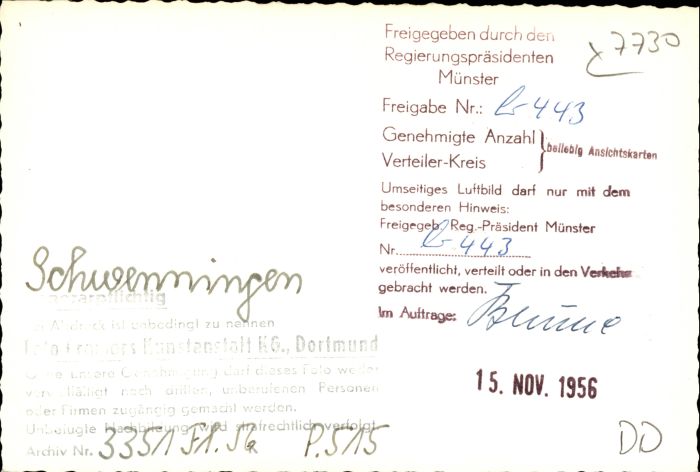 Freigegeben durch den
Regierungspräsidenten
Münster
7730
Freigabe Nr.: 443
Genehmigte Anzahl
Verteiler-Kreis
beliebig Ansichtskarten
Umseitiges Luftbild darf nur mit dem
besonderen Hinweis:
Freigegeb. Reg.-Präsident Münster
Nr. 443
veröffentlicht, verteilt oder in den Verkehr
gebracht werden.
Im Auftrage:
15. NOV. 1956
Schwenningen
ist unbedingt zu nennen
Kunstanstalt KG., Dortmund
unsere Genehmigung darf dieses Foto weder
noch dritten, unberufenen Personen
oder Firmen zugängig gemacht werden.
Unbefugte Nachbildung wird strafrechtlich verfolgt
Archiv Nr. 3351 P.515
DD